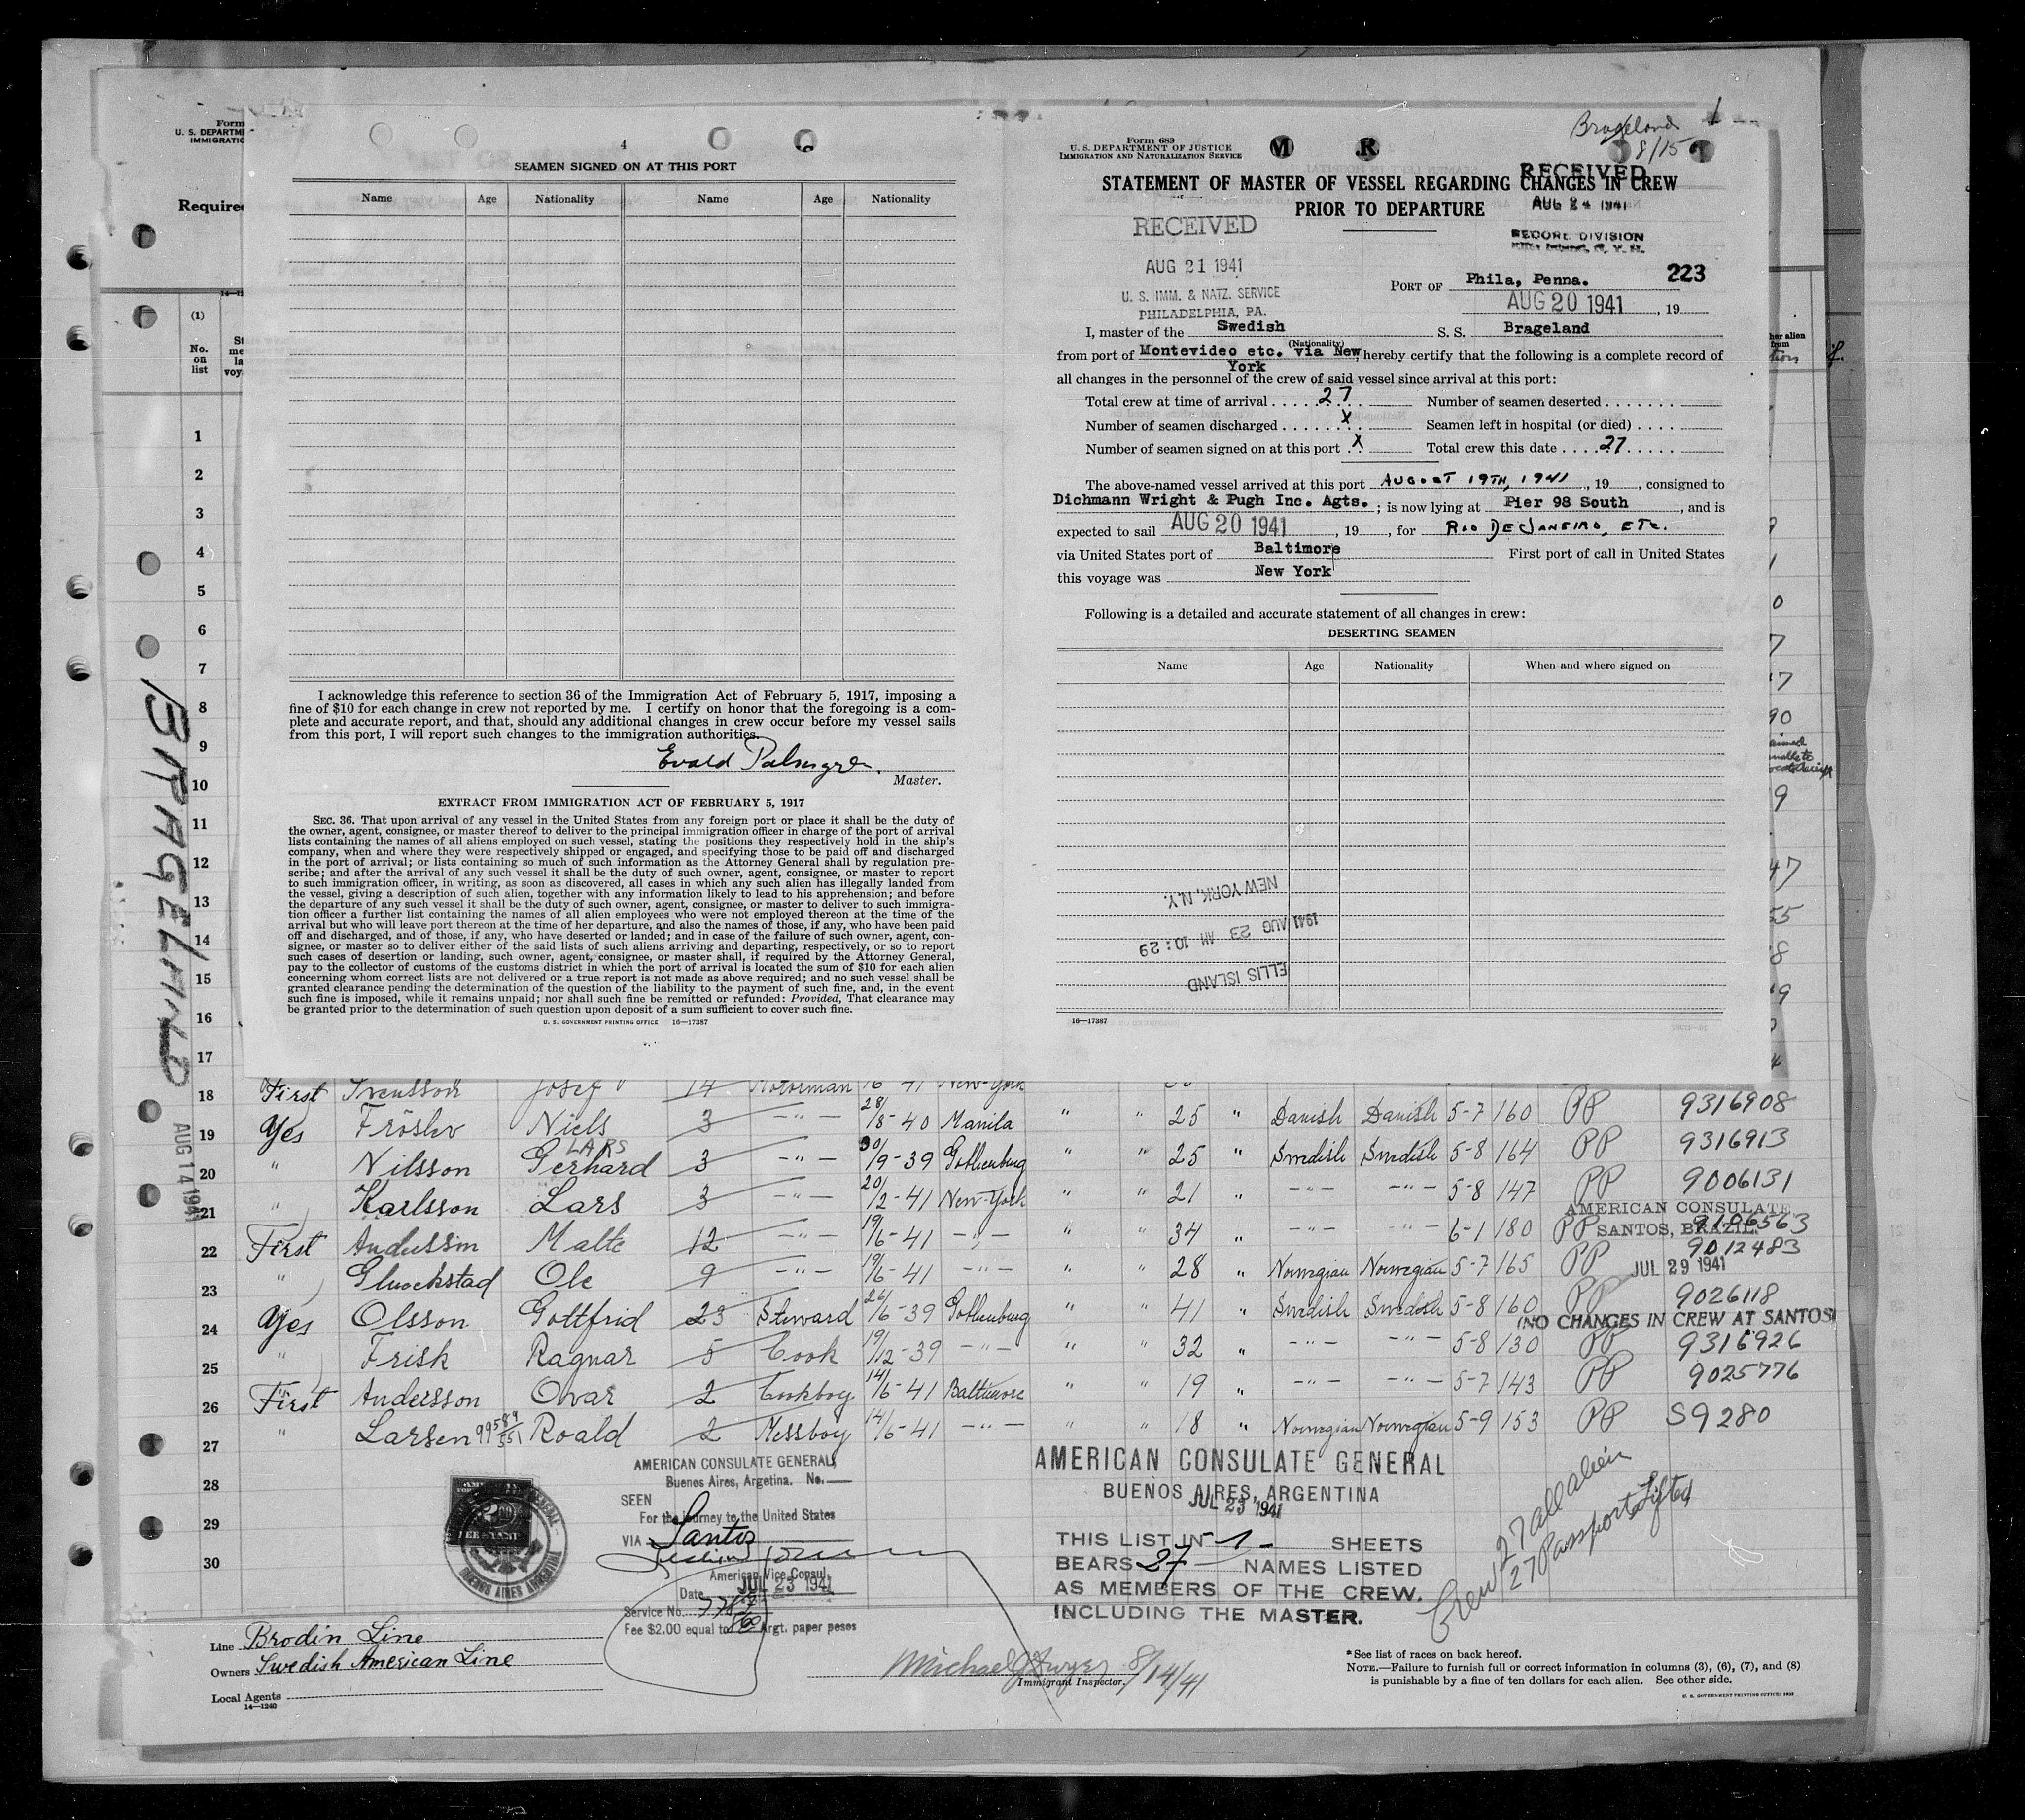 Form
U. S. DEPARTM
IMMIGRATIC
Require
(1)
No.
on
list
1
2
3
4
5
6
7
8
9
10
11
12
13
14
15
16
17
BRAGELAND
AUG 14 1941
4
SEAMEN SIGNED ON AT THIS PORT
Name Age Nationality Name Age Nationality
I acknowledge this reference to section 36 of the Immigration Act of February 5, 1917, imposing a
fine of $10 for each change in crew not reported by me. I certify on honor that the foregoing is a com-
plete and accurate report, and that, should any additional changes in crew occur before my vessel sails
from this port, I will report such changes to the immigration authorities.
Evald Palmgren.
Master.
EXTRACT FROM IMMIGRATION ACT OF FEBRUARY 5, 1917
SEC. 36. That upon arrival of any vessel in the United States from any foreign port or place it shall be the duty of
the owner, agent, consignee, or master thereof to deliver to the principal immigration officer in charge of the port of arrival
lists containing the names of all aliens employed on such vessel, stating the positions they respectively hold in the ship's
company, when and where they were respectively shipped or engaged, and specifying those to be paid off and discharged
in the port of arrival; or lists containing so much of such information as the Attorney General shall by regulation pre-
scribe; and after the arrival of any such vessel it shall be the duty of such owner, agent, consignee, or master to report
to such immigration officer, in writing, as soon as discovered, all cases in which any such alien has illegally landed from
the vessel, giving a description of such alien, together with any information likely to lead to his apprehension; and before
the departure of any such vessel it shall be the duty of such owner, agent, consignee, or master to deliver to such immigra-
tion officer a further list containing the names of all alien employees who were not employed thereon at the time of the
arrival but who will leave port thereon at the time of her departure, and also the names of those, if any, who have been paid
off and discharged, and of those, if any, who have deserted or landed; and in case of the failure of such owner, agent, con-
signee, or master so to deliver either of the said lists of such aliens arriving and departing, respectively, or so to report
such cases of desertion or landing, such owner, agent, consignee, or master shall, if required by the Attorney General,
pay to the collector of customs of the customs district in which the port of arrival is located the sum of $10 for each alien
concerning whom correct lists are not delivered or a true report is not made as above required; and no such vessel shall be
granted clearance pending the determination of the question of the liability to the payment of such fine, and, in the event
such fine is imposed, while it remains unpaid; nor shall such fine be remitted or refunded: Provided, That clearance may
be granted prior to the determination of such question upon deposit of a sum sufficient to cover such fine.
U. S. GOVERNMENT PRINTING OFFICE 16—17387
Brageland
8/15
Form 689
U. S. DEPARTMENT OF JUSTICE
IMMIGRATION AND NATURALIZATION SERVICE
M R
STATEMENT OF MASTER OF VESSEL REGARDING CHANGES IN CREW
PRIOR TO DEPARTURE
RECEIVED
AUG 24 1941
RECORD DIVISION
RECEIVED
AUG 21 1941
U. S. IMM. & NATZ. SERVICE
PHILADELPHIA, PA.
223
PORT OF Phila, Penna.
AUG 20 1941, 19
I, master of the Swedish S. S. Brageland
(Nationality)
from port of Montevideo etc. via New York, hereby certify that the following is a complete record of
all changes in the personnel of the crew of said vessel since arrival at this port:
Total crew at time of arrival 27 Number of seamen deserted
Number of seamen discharged X Seamen left in hospital (or died)
Number of seamen signed on at this port X Total crew this date 27
The above-named vessel arrived at this port AUGUST 19TH, 1941, 19, consigned to
Dichmann Wright & Pugh Inc. Agts.; is now lying at Pier 98 South, and is
expected to sail AUG 20 1941, 19, for RIO DE JANEIRO, ETC.
via United States port of Baltimore First port of call in United States
this voyage was New York
Following is a detailed and accurate statement of all changes in crew:
DESERTING SEAMEN
Name Age Nationality When and where signed on
NEW YORK, N.Y.
1941 AUG 23 AM 10:29
ELLIS ISLAND
16—17387
18 First Svensson Josef 14 Motorman 16 41 New-York
19 Yes Fröslev Niels 3 -"- 28/8-40 Manila " " 25 " Danish Danish 5-7 160 PP 9316908
20 " Nilsson LARS Gerhard 3 -"- 30/9-39 Gothenburg " " 25 " Swedish Swedish 5-8 164 PP 9316913
21 " Karlsson Lars 3 -"- 20/2-41 New-York " " 21 " -"- -"- 5-8 147 PP 9006131
22 First Andersson Malte 12 -"- 19/6-41 -"- " " 34 " -"- -"- 6-1 180 PP 9106563
23 " Gluckstad Ole 9 -"- 19/6-41 -"- " " 28 " Norwegian Norwegian 5-7 165 PP 9012483
24 Yes Olsson Gottfrid 23 Steward 26/6-39 Gothenburg " " 41 " Swedish Swedish 5-8 160 PP 9026118
25 " Frisk Ragnar 5 Cook 19/12-39 -"- " " 32 " -"- -"- 5-8 130 PP 9316926
26 First Andersson Ovar 2 Cookboy 14/6-41 Baltimore " " 19 " -"- -"- 5-7 143 PP 9025776
27 " Larsen Roald 2 Messboy 14/6-41 -"- " " 18 " Norwegian Norwegian 5-9 153 PP S9280
28
29
30
AMERICAN CONSULATE
SANTOS, BRAZIL
JUL 29 1941
(NO CHANGES IN CREW AT SANTOS)
AMERICAN CONSULATE GENERAL
Buenos Aires, Argetina. No.
SEEN
For the journey to the United States
VIA Santos
American Vice Consul
Date JUL 23 1941
Service No. 7787
Fee $2.00 equal to Argt. paper pesos
BUENOS AIRES ARGENTINA
AMERICAN CONSULATE GENERAL
BUENOS AIRES, ARGENTINA
JUL 23 1941
THIS LIST IN 1 SHEETS
BEARS 27 NAMES LISTED
AS MEMBERS OF THE CREW.
INCLUDING THE MASTER.
Crew 27 all alien
27 Passports Lifted
Line Brodin Line
Owners Swedish American Line
Local Agents
14—1240
Michael J Dwyer 8/14/41
Immigrant Inspector.
*See list of races on back hereof.
NOTE.—Failure to furnish full or correct information in columns (3), (6), (7), and (8)
is punishable by a fine of ten dollars for each alien. See other side.
U. S. GOVERNMENT PRINTING OFFICE